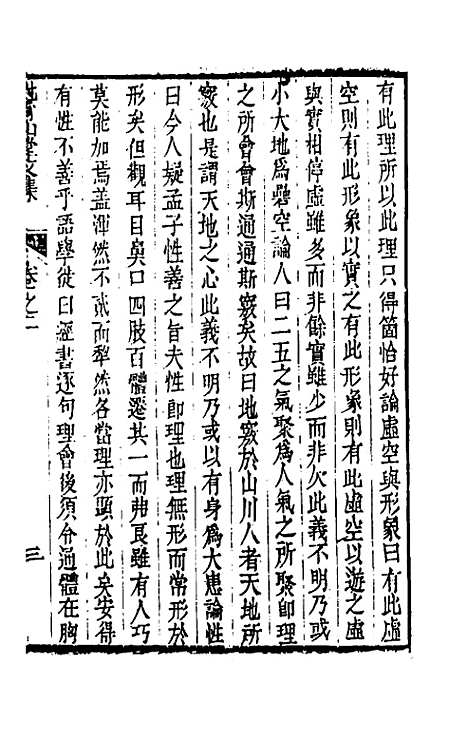 有此理所以此理只得箇恰好論虛空與形象曰有此虛
空則有此形象以實之有此形象則有此虛空以遊之虛
與實相停虛雖多而非餘實雖少而非欠此義不明乃或
小大地爲礨空論人曰二五之氣聚爲人氣之所聚卽理
之所會會斯通通斯竅矣故曰地竅於山川人者天地所
竅也是謂天地之心此義不明乃或以有身爲大患論性
曰今人疑孟子性善之旨夫性卽理也理無形而常形於
形矣但觀耳目鼻口四肢百體遷其一而弗良雖有人巧
莫能加焉蓋渾然不貳而犁然各當理亦顯於此矣安得
有性不善乎語學徒曰經書逐句理會後須分過體在胸
文集
卷之二
三